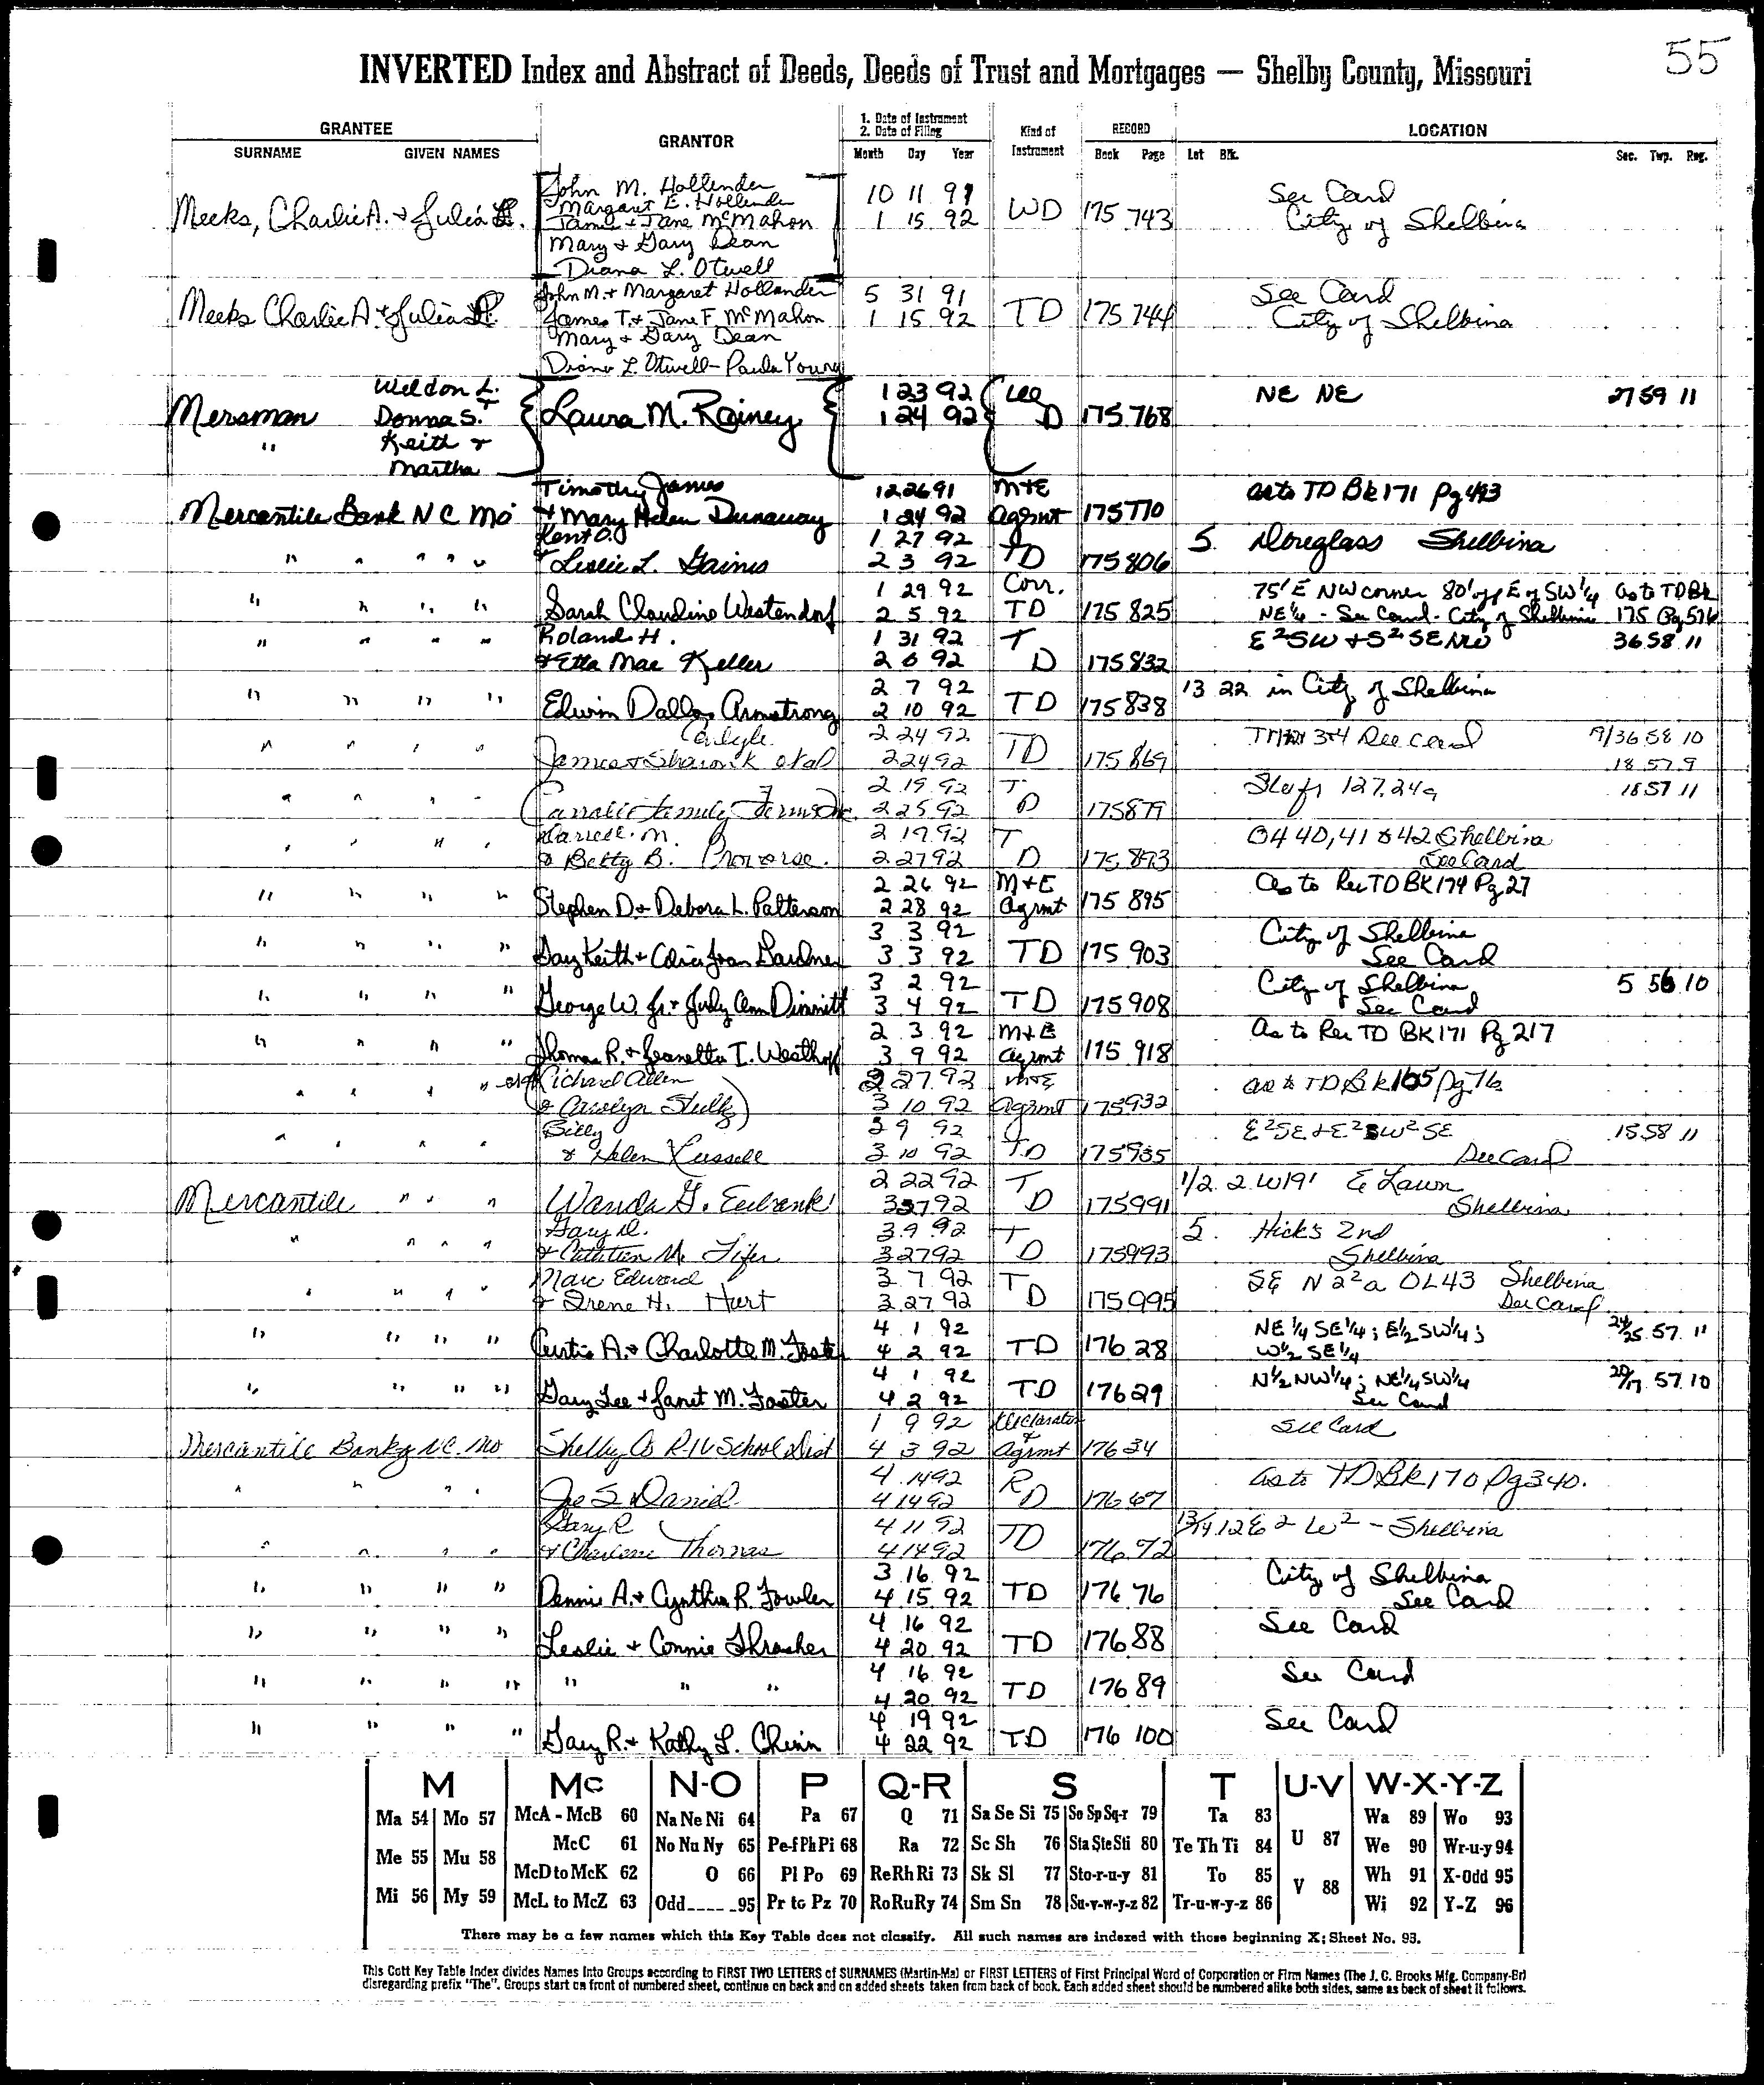 55
INVERTED Index and Abstract of Deeds, Deeds of Trust and Mortgages — Shelby County, Missouri
GRANTEE GRANTOR 1. Date of Instrument 2. Date of Filing Kind of Instrument RECORD LOCATION
SURNAME GIVEN NAMES Month Day Year Book Page Lot Blk. Sec. Twp. Rng.
John M. Hollender 10 11 91 See Card
Margaret E. Hollender
Meeks, Charlie A. & Julia James & Jane McMahon 1 15 92 WD 175 743 City of Shelbina
Mary & Gary Dean
Diana L. Otwell
John M. & Margaret Hollander 5 31 91 See Card
Meeks Charlie A. & Julia James T. & Jane F. McMahon 1 15 92 TD 175 744 City of Shelbina
Mary & Gary Dean
Diana L. Otwell - Paula Young
Weldon L. & 1 23 92 NE NE 27 59 11
Mersman Donna S. Laura M. Rainey 1 24 92 D 175 768
" Keith &
Martha
Timothy James 12 26 91 M+E as to TD Bk 171 Pg 493
Mercantile Bank N C Mo & Mary Helen Dunaway 1 24 92 Agrmt 175 770
Kent O. 1 27 92 5 Douglass Shelbina
" " " " " & Leslie L. Gaines 2 3 92 TD 175 806
1 29 92 Corr. 75' E NW corner 80' off E of SW 1/4 as to TD Bk
" " " " Sarah Claudine Westendorf 2 5 92 TD 175 825 NE 1/4 - See Card - City of Shelbina 175 Pg 576
Roland H. 1 31 92 T E²SW & S²SE NW 36 58 11
" " " " & Etta Mae Keller 2 6 92 D 175 832
2 7 92 13 22 in City of Shelbina
" " " " Edwin Dallas Armstrong 2 10 92 TD 175 838
Carlyle 2 24 92 3+4 See Card 9/36 58 10
" " " " James & Sharon K etal 2 24 92 TD 175 869 18 57 9
2 19 92 T 127.24a 18 57 11
" " " " Family Farms 2 25 92 D 175 879
2 19 92 T 40, 41 & 42 Shelbina
" " " " & Betty B. 2 27 92 D 175 893 See Card
2 26 92 M+E As to Rec TD BK 174 Pg 27
" " " " Stephen D. & Debora L. Patterson 2 28 92 Agrmt 175 895
3 3 92 City of Shelbina
" " " " Gary Keith & Joan Gardner 3 3 92 TD 175 903 See Card
3 2 92 City of Shelbina 5 56 10
" " " " George W. Jr. & Judy Ann Dimmitt 3 4 92 TD 175 908 See Card
2 3 92 M+E As to Rec TD BK 171 Pg 217
" " " " Thomas R. & Jeanetta I. Westhoff 3 9 92 Agrmt 175 918
Richard Allen 2 27 92 M+E as to TD Bk 165 Pg 76
" " " " & Carolyn 3 10 92 Agrmt 175 932
Billy 3 9 92 E²SE & E²SW²SE 15 58 11
" " " " & Helen Russell 3 10 92 TD 175 935 See Card
2 22 92 T 1/2 2 W19' E Lawn
Mercantile " " " Wanda G. Eubank 3 27 92 D 175 991 Shelbina
Gary D. 3 9 92 T 5 Hicks 2nd
" " " " & M. Fifer 3 27 92 D 175 993 Shelbina
Marc Edward 3 7 92 T SE N 2²a OL 43 Shelbina
" " " " & Irene H. Hurt 3 27 92 D 175 995 See Card
4 1 92 NE 1/4 SE 1/4; E 1/2 SW 1/4; 24/25 57 11
" " " " Curtis A. & Charlotte M. Foster 4 2 92 TD 176 28 W 1/2 SE 1/4
4 1 92 N 1/2 NW 1/4; NE 1/4 SW 1/4 20/17 57 10
" " " " Gary Lee & Janet M. Foster 4 2 92 TD 176 29 See Card
1 9 92 Declaration See Card
Mercantile Bank of N.C. Mo Shelby Co R-IV School Dist 4 3 92 & Agrmt 176 34
4 14 92 R as to TD Bk 170 Pg 340.
" " " " Joe S Daniel 4 14 92 D 176 67
Gary R 4 11 92 13/14 12 E 2 W² - Shelbina
" " " " & Charlene Thomas 4 14 92 TD 176 72
3 16 92 City of Shelbina
" " " " Dennis A. & Cynthia R. Fowler 4 15 92 TD 176 76 See Card
4 16 92 See Card
" " " " Leslie & Connie Thrasher 4 20 92 TD 176 88
4 16 92 See Card
" " " " " " " 4 20 92 TD 176 89
4 19 92 See Card
" " " " Gary R. & Kathy L. Chinn 4 22 92 TD 176 100
M Mc N-O P Q-R S T U-V W-X-Y-Z
Ma 54 Mo 57 McA - McB 60 Na Ne Ni 64 Pa 67 Q 71 Sa Se Si 75 So Sp Sq-r 79 Ta 83 U 87 Wa 89 Wo 93
Me 55 Mu 58 McC 61 No Nu Ny 65 Pe-f Ph Pi 68 Ra 72 Sc Sh 76 Sta Ste Sti 80 Te Th Ti 84 We 90 Wr-u-y 94
McD to McK 62 O 66 Pl Po 69 Re Rh Ri 73 Sk Sl 77 Sto-r-u-y 81 To 85 V 88 Wh 91 X-Odd 95
Mi 56 My 59 McL to McZ 63 Odd-----95 Pr to Pz 70 Ro Ru Ry 74 Sm Sn 78 Su-v-w-y-z 82 Tr-u-w-y-z 86 Wi 92 Y-Z 96
There may be a few names which this Key Table does not classify. All such names are indexed with those beginning X; Sheet No. 93.
This Cott Key Table Index divides Names Into Groups according to FIRST TWO LETTERS of SURNAMES (Martin-Ma) or FIRST LETTERS of First Principal Word of Corporation or Firm Names (The J. C. Brooks Mfg. Company-Br)
disregarding prefix "The". Groups start on front of numbered sheet, continue on back and on added sheets taken from back of book. Each added sheet should be numbered alike both sides, same as back of sheet it follows.